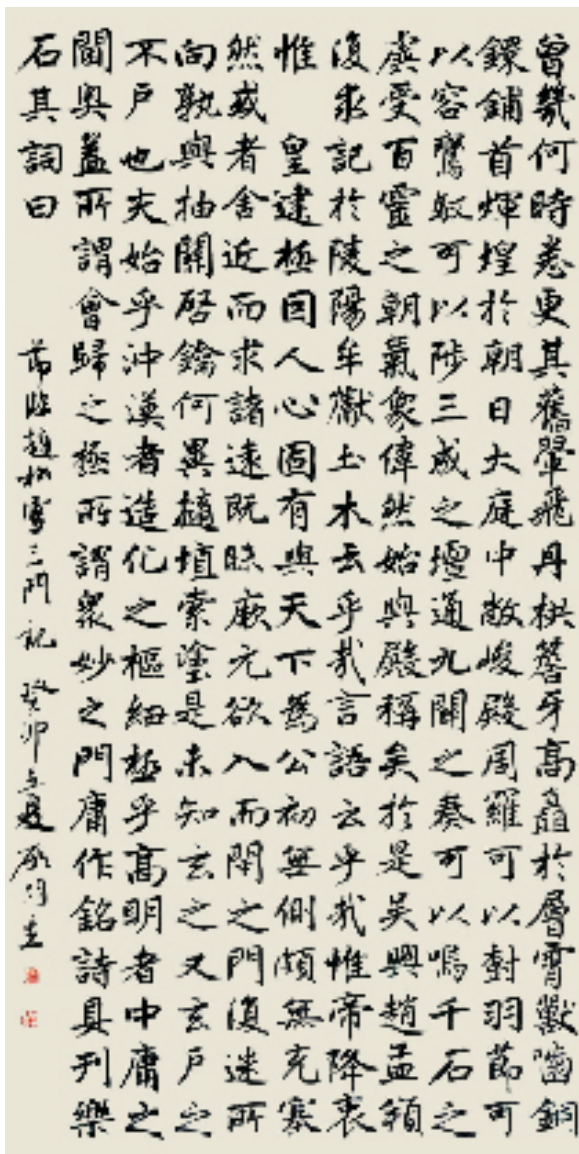 曾幾何時悉更其舊翬飛丹栱簷牙高矗於層霄獸嚙銅
鐶鋪首煇煌於朝日大庭中敞峻殿周羅可以尌羽節可
以容鸞馭可以陟三成之壇通九關之奏可以鳴千石之
虡受百靈之朝氣象偉然始與殿稱矣於是吳興趙孟頫
復求記於陵陽牟巘土木云乎哉言語云乎哉惟帝降衷
惟 皇建極因人心固有與天下為公初無側頗無充塞
然或者舍近而求諸遠既昧厥元欲入而閉之門復迷所
向孰與抽關啓鑰何異擿埴索塗是未知玄之又玄戶之
不戶也夫始乎沖漠者造化之樞紐極乎高明者中庸之
閫奧蓋所謂會歸之極所謂眾妙之門庸作銘詩具刊樂
石其詞曰
節臨趙松雪三門記 癸卯之夏